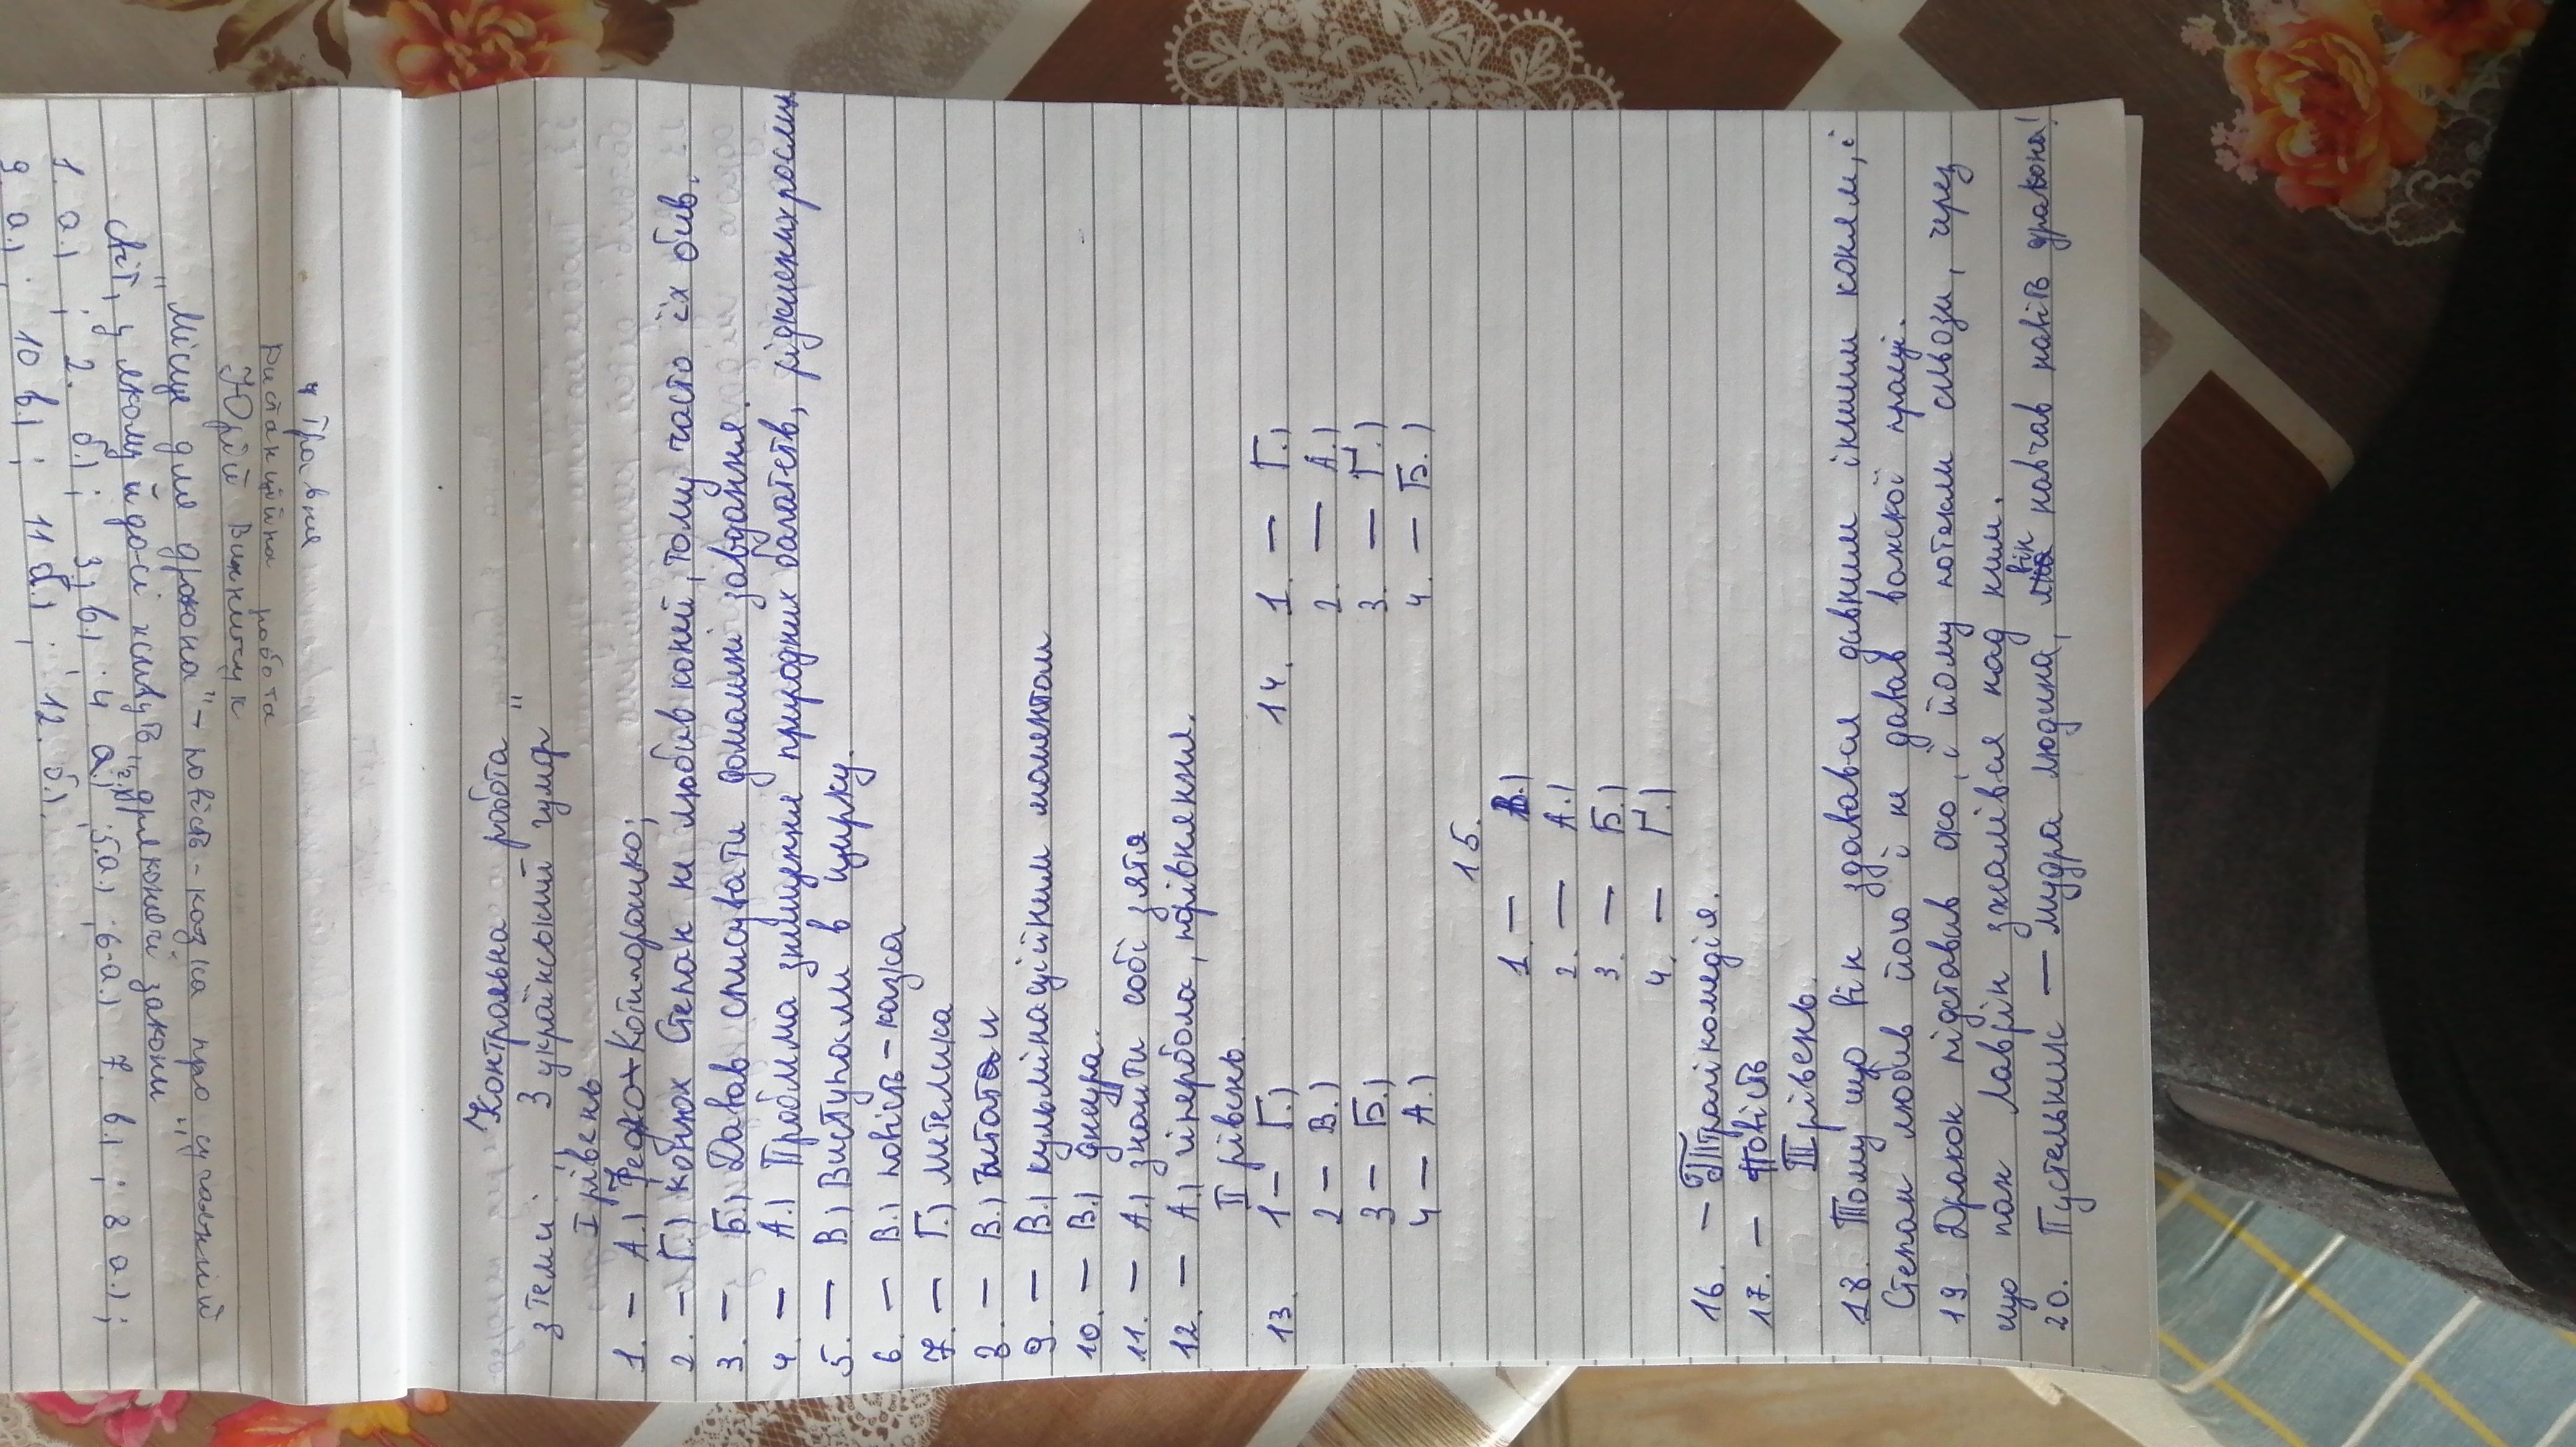 4 Травня
Дистанційна робота
Юрій Винничук
"Місце для дракона" – повість-казка про
світ, у якому й досі існують
1. а.) ; 2. б.) ; 3.) в.) ; 4 а.) ; 5. а.) ; 6. а.) 7. в.) ; 8 а.) ;
9. а.) ; 10 в.) ; 11 б.) ; 12. б.)
"Контрольна робота"
з теми: "З українським гумор"
I рівень
1. – А.) Котигорошко;
2. – Г.) конюх Степан не любив коней, тому часто їх бив.
3. – Б.) Давав списувати домашні завдання.
4 – А.) Проблема знищення природних багатств, рідкісних рослин
5. – В.) Виступали в цирку.
6. – В.) повість – казка
7. – Г.) метелика
8. – В.)
9. – В.) кульмінаційним моментом
10. – В.) джура.
11. – А.) знайти собі зятя
12. – А.) гіпербола, порівняння.
II рівень
13. 1 – Г.)
2 – В.)
3 – Б.)
4 – А.)
14. 1. – Г.)
2. – А.)
3. – Ґ.)
4. – Б.)
15.
1. – В.)
2. – А.)
3. – Б.)
4. – Ґ.)
16. – Трагікомедія.
17. – Повість
III рівень.
18. Тому що він здавався дивним іншим коням, і
Степан любив його і не давав важкої праці.
19. Дракон підставив око, і йому потекли сльози, через
що пан Лаврін зжалівся над ним.
20. Пустельник – мудра людина, він навчав навіть дракона!